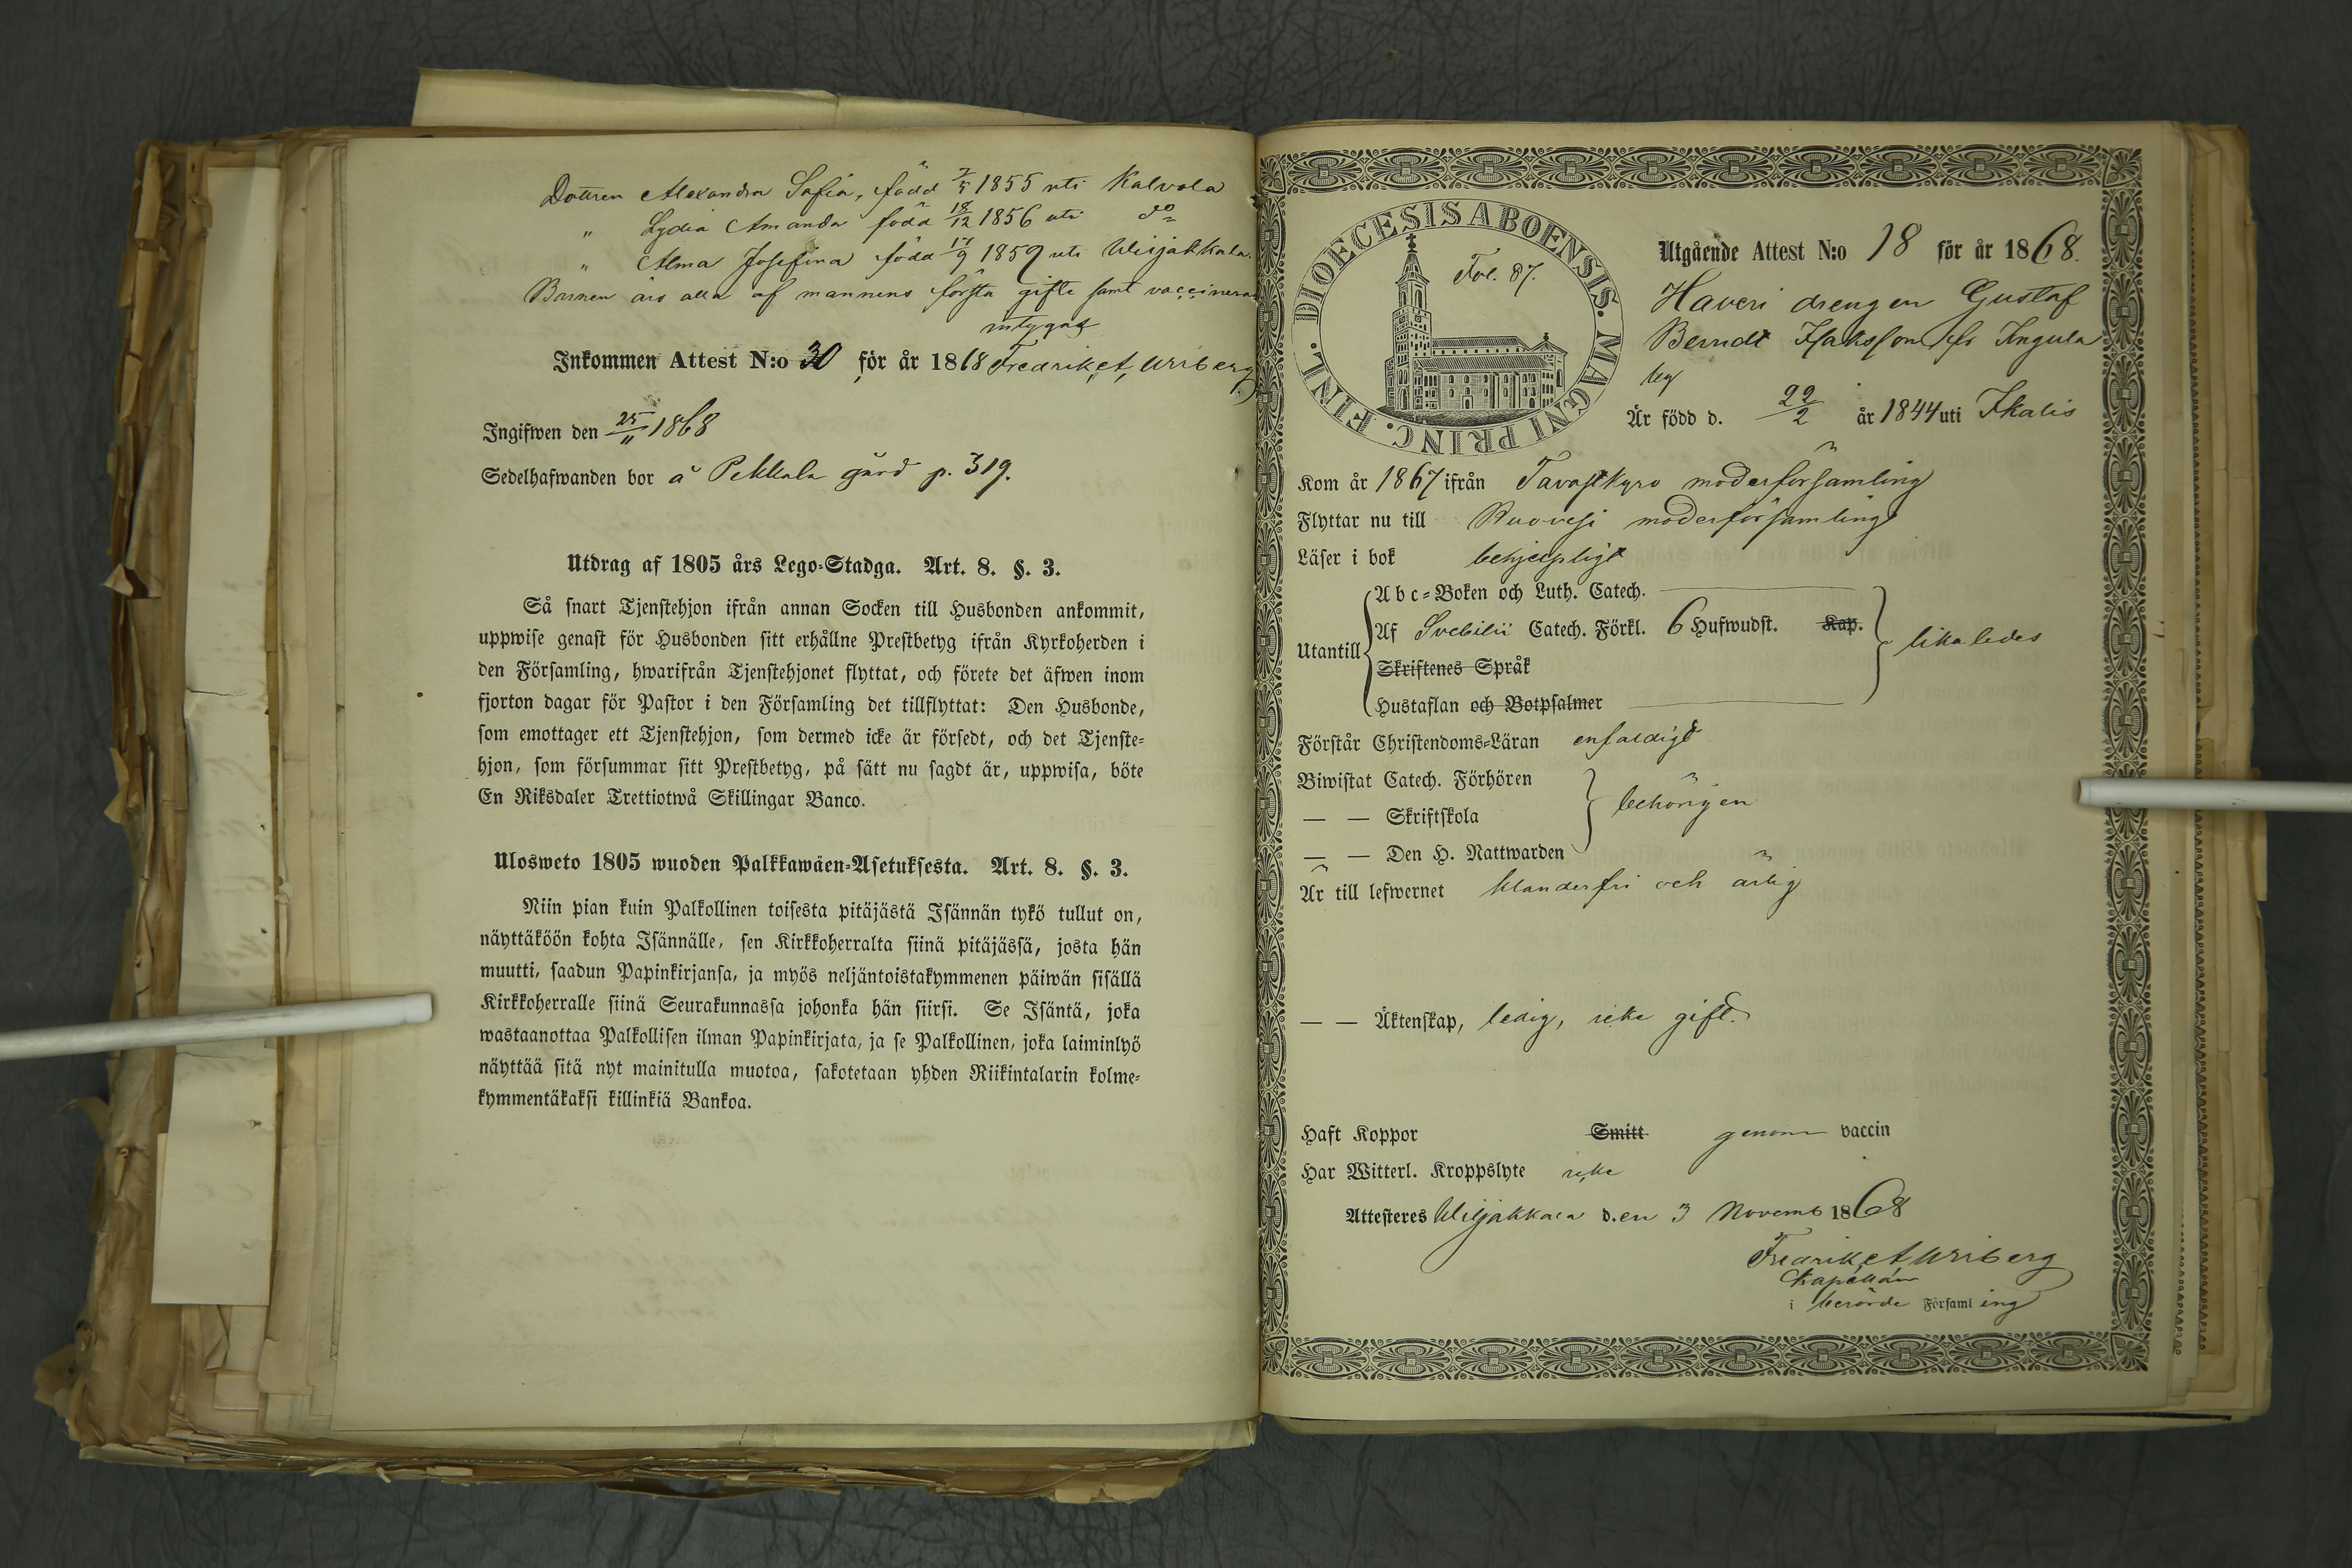 Dottren Alexandra Sofia, född 7/5 1855 uti Kalvola
" Lydia Amanda född 18/12 1856 uti do
" Alma Josefina född 17/9 1859 uti Wiljakkala.
Barnen äro alla af mannens första gifte samt vaccinerade
intygas
Inkommen Attest N:o 30 för år 1868 Fredrik A. Wriberg
Ingifwen den 25/11 1868
Sedelhafwanden bor å Pekkala gård p. 319.
Utdrag af 1805 års Lego-Stadga. Art. 8. §. 3.
Så snart Tjenstehjon ifrån annan Socken till Husbonden ankommit,
uppwise genast för Husbonden sitt erhållne Prestbetyg ifrån Kyrkoherden i
den Församling, hwarifrån Tjenstehjonet flyttat, och förete det äfwen inom
fjorton dagar för Pastor i den Församling det tillflyttat: Den Husbonde,
som emottager ett Tjenstehjon, som dermed icke är försedt, och det Tjenste-
hjon, som försummar sitt Prestbetyg, på sätt nu sagdt är, uppwisa, böte
En Riksdaler Trettiotwå Skillingar Banco.
Ulosweto 1805 wuoden Palkkawäen-Asetuksesta. Art. 8. §. 3.
Niin pian kuin Palkollinen toisesta pitäjästä Isännän tykö tullut on,
näyttäköön kohta Isännälle, sen Kirkkoherralta siinä pitäjässä, josta hän
muutti, saadun Papinkirjansa, ja myös neljäntoistakymmenen päiwän sisällä
Kirkkoherralle siinä Seurakunnassa johonka hän siirsi. Se Isäntä, joka
wastaanottaa Palkollisen ilman Papinkirjata, ja se Palkollinen, joka laiminlyö
näyttää sitä nyt mainitulla muotoa, sakotetaan yhden Riikintalarin kolme-
kymmentäkaksi killinkiä Bankoa.
DIOECESIS ABOENSIS. MAGNI PRINC. FINL.
Fol. 87.
Utgående Attest N:o 18 för år 1868.
Haveri drengen Gustaf
Berndt Isaksson fr Ingula
by
Är född d. 22/2 år 1844 uti Ikalis
Kom år 1867 ifrån Tavastkyro moderförsamling
Flyttar nu till Ruovesi moderförsamling
Läser i bok behjelpligt
Abc-Boken och Luth. Catech.
Utantill Af Svebilii Catech. Förkl. 6 Hufwudst. Kap. likaledes
Skriftenes Språk
Hustaflan och Botpsalmer
Förstår Christendoms-Läran enfaldigt
Biwistat Catech. Förhören
— — Skriftskola behörigen
— — Den H. Nattwarden
Är till lefwernet klanderfri och ärlig
— — Äktenskap, ledig, icke gift.
Haft Koppor Smitt genom vaccin
Har Witterl. Kroppslyte icke
Attesteres Wiljakkala d.en 3 Novemb 1868
Fredrik A Wriberg
Kapellan
i berörde Församling